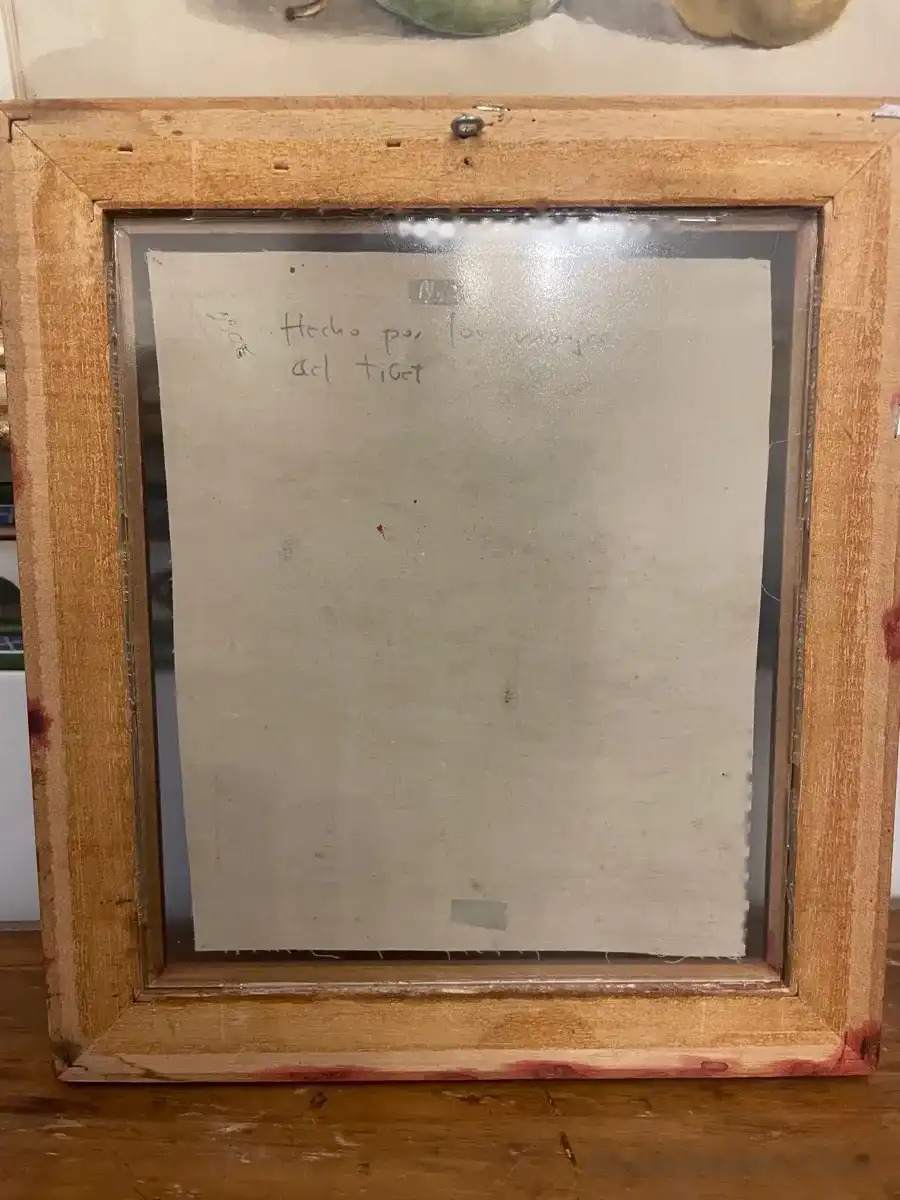 Hecho por los monjes
del tibet